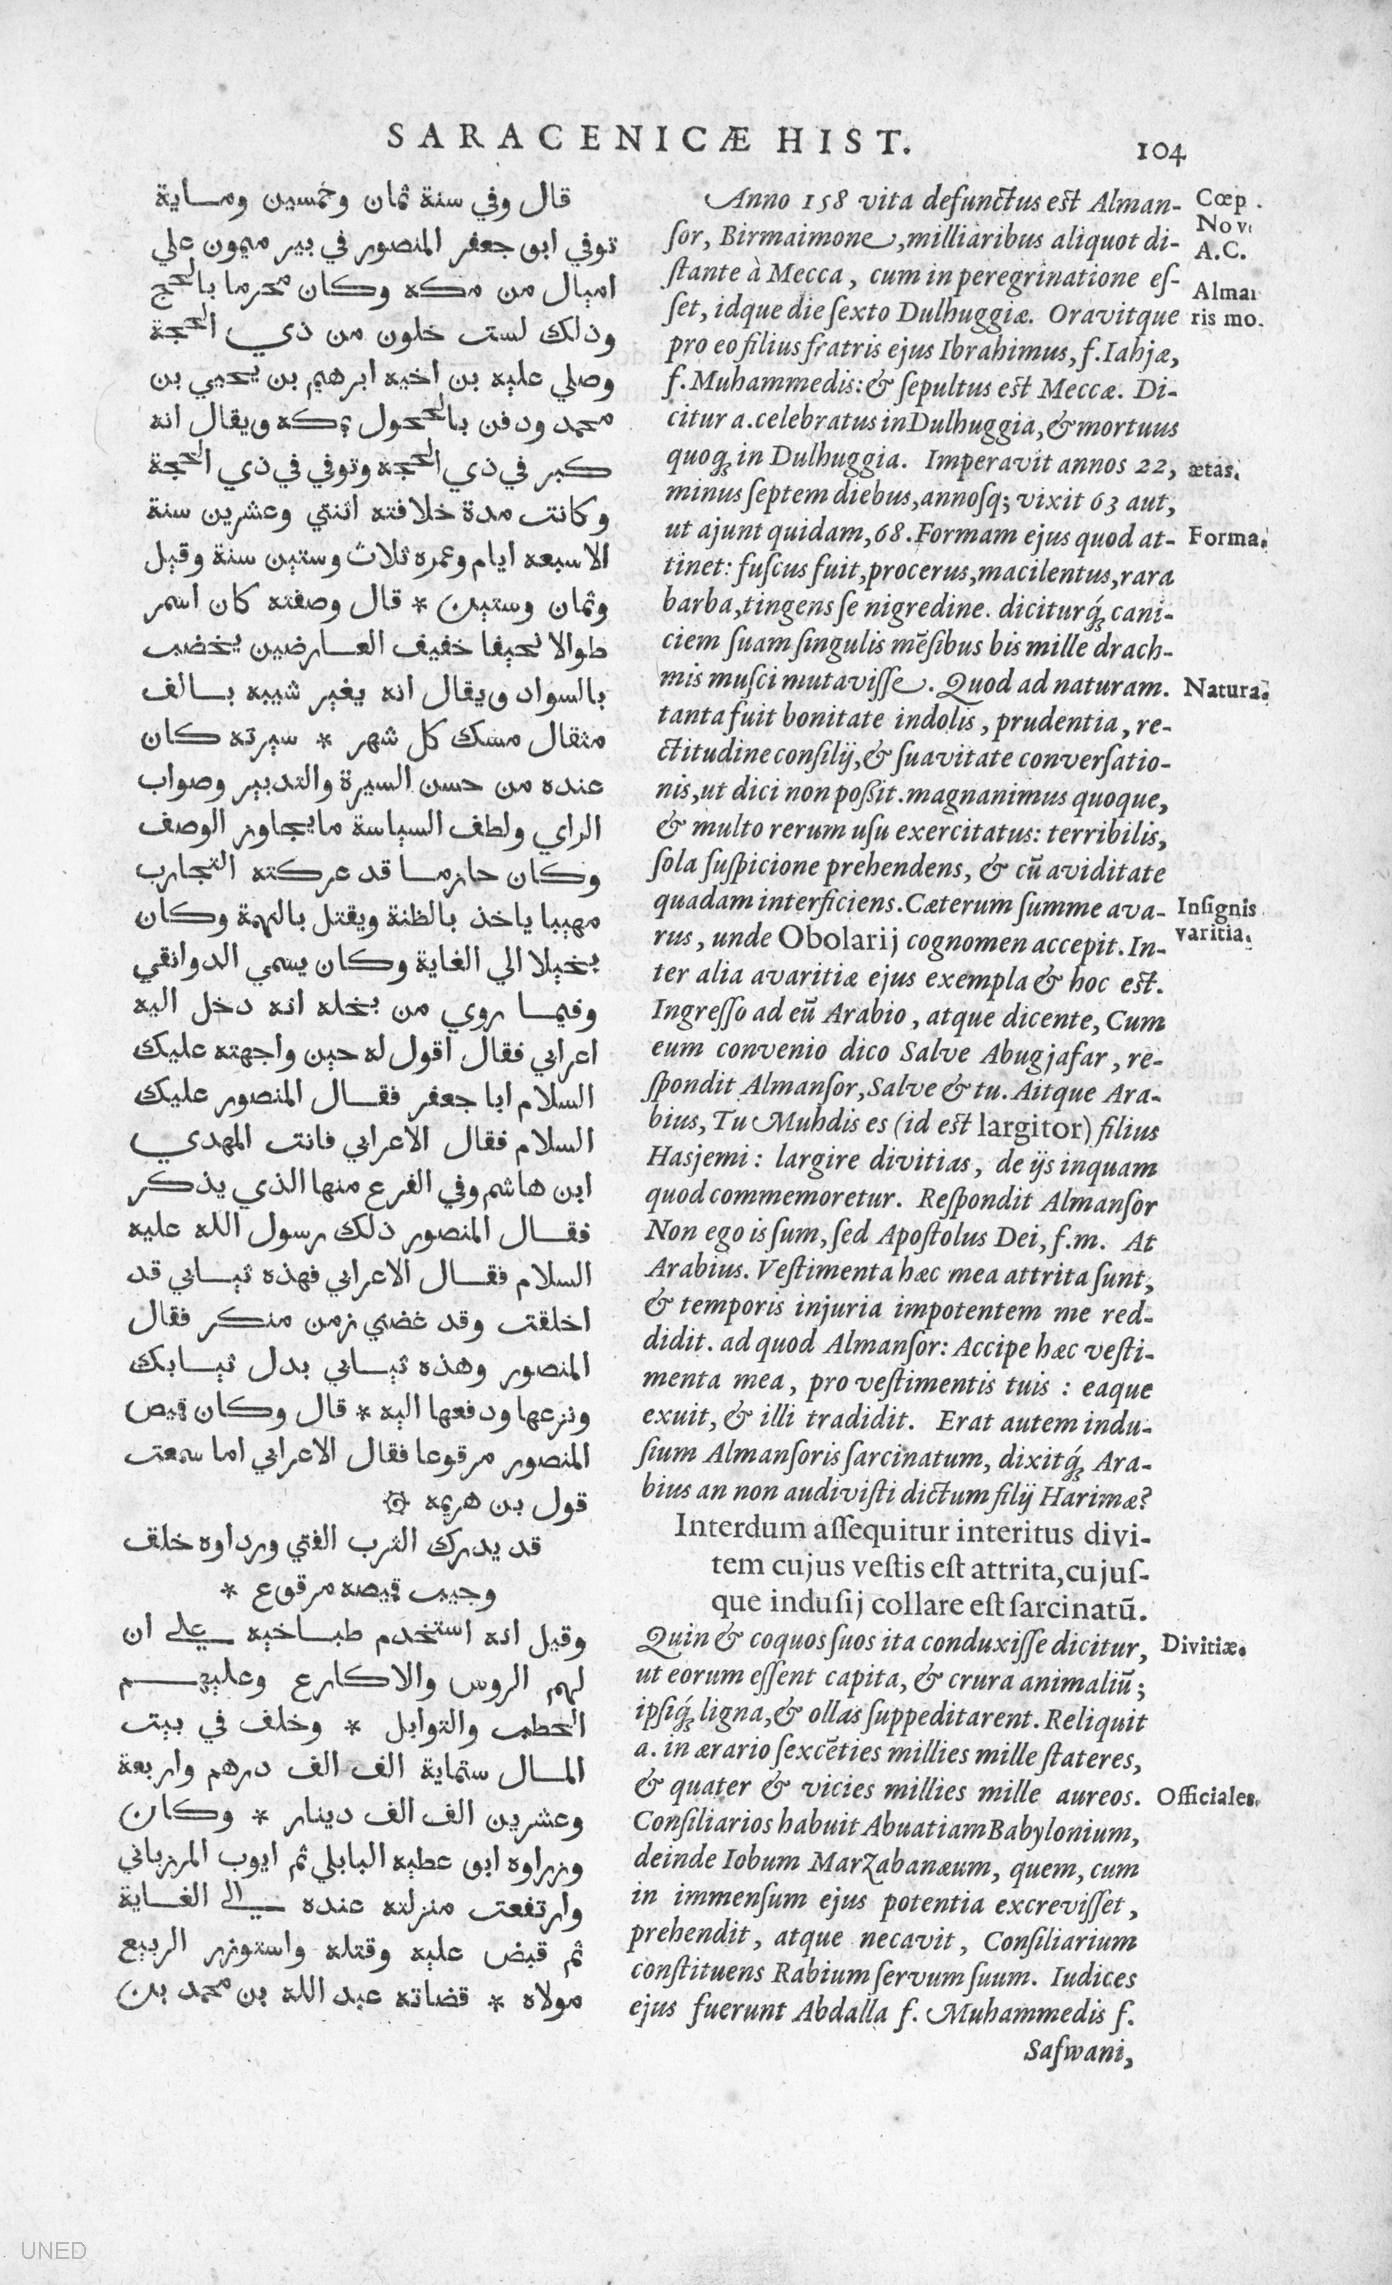 SARACENICÆ HIST.
104
قال وفي سنة ثمان وخمسين ومـاية
توفي ابو جعفر المنصور في بير ميمون علي
اميال من مكه وكان محرما بالحج
وذلك لست خلون من ذي الحجة
وصلي عليه بن اخيه ابرهيم بن يحيي بن
محمد ودفن بالحجول بمكه ويقال انه
كبر في ذي الحجه وتوفي في ذي الحجة
وكانت مدة خلافته اثنتي وعشرين سنة
الا سبعه ايام وعمره ثلاث وستين سنة وقيل
وثمان وستين * قال وصفته كان اسمر
طوالا نحيفا خفيف العـارضين يخضب
بالسواد ويقال انه يغير شيبه بـالف
مثقال مسك كل شهر * سيرته كان
عنده من حسن السيرة والتدبير وصواب
الراي ولطف السياسة ما يجاوز الوصف
وكان حازمـا قد عركته التجارب
مهيبا ياخذ بالظنة ويقتل بالتهمة وكان
بخيلا الي الغاية وكان يسمي الدوانقي
وفيمـا روي من بخله انه دخل اليه
اعرابي فقال اقول له حين واجهته عليك
السلام ابا جعفر فقـال المنصور عليك
السلام فقال الاعرابي فانت المهدي
ابن هاشم وفي الفرع منها الذي يذكر
فقـال المنصور ذلك رسول الله عليه
السلام فقـال الاعرابي فهذه ثيـابي قد
اخلقت وقد غضني زمن منكر فقال
المنصور وهذه ثيـابي بدل ثيـابك
ونزعها ودفعها اليه * قال وكان قميص
المنصور مرقوعا فقال الاعرابي اما سمعت
قول بن هريمه ۞
قد يدرك الترب الفتي ورداوه خلق
وجيب قميصه مرقوع *
وقيل انه استخدم طبـاخيه علي ان
لهم الروس والاكارع وعليهـم
الحطب والتوابل * وخلف في بيت
المـال ستماية الف الف درهم واربعة
وعشرين الف الف دينار * وكان
وزراوه ابو عطيه البابلي ثم ايوب المرزباني
وارتفعت منزلته عنده الي الغـاية
ثم قبض عليه وقتله واستوزر الربيع
مولاه * قضاته عبد الله بن محمد بن
Anno 158 vita defunctus est Alman-
sor, Birmaimone, milliaribus aliquot di-
stante à Mecca, cum in peregrinatione es-
set, idque die sexto Dulhuggiæ. Oravitque
pro eo filius fratris ejus Ibrahimus, f. Iahjæ,
f. Muhammedis: & sepultus est Meccæ. Di-
citur a. celebratus in Dulhuggia, & mortuus
quoq; in Dulhuggia. Imperavit annos 22,
minus septem diebus, annosq; vixit 63 aut,
ut ajunt quidam, 68. Formam ejus quod at-
tinet: fuscus fuit, procerus, macilentus, rara
barba, tingens se nigredine. diciturq́; cani-
ciem suam singulis mēsibus bis mille drach-
mis musci mutavisse. Quod ad naturam.
tanta fuit bonitate indolis, prudentia, re-
ctitudine consilij, & suavitate conversatio-
nis, ut dici non possit. magnanimus quoque,
& multo rerum usu exercitatus: terribilis,
sola suspicione prehendens, & cū aviditate
quadam interficiens. Cæterum summe ava-
rus, unde Obolarij cognomen accepit. In-
ter alia avaritiæ ejus exempla & hoc est.
Ingresso ad eū Arabio, atque dicente, Cum
eum convenio dico Salve Abugjafar, re-
spondit Almansor, Salve & tu. Aitque Ara-
bius, Tu Muhdis es (id est largitor) filius
Hasjemi: largire divitias, de ijs inquam
quod commemoretur. Respondit Almansor
Non ego is sum, sed Apostolus Dei, f.m. At
Arabius. Vestimenta hæc mea attrita sunt,
& temporis injuria impotentem me red-
didit. ad quod Almansor: Accipe hæc vesti-
menta mea, pro vestimentis tuis : eaque
exuit, & illi tradidit. Erat autem indu-
sium Almansoris sarcinatum, dixitq́; Ara-
bius an non audivisti dictum filij Harimæ?
Interdum assequitur interitus divi-
tem cujus vestis est attrita, cujus-
que indusij collare est sarcinatū.
Quin & coquos suos ita conduxisse dicitur,
ut eorum essent capita, & crura animaliū;
ipsiq́; ligna, & ollas suppeditarent. Reliquit
a. in ærario sexcēties millies mille stateres,
& quater & vicies millies mille aureos.
Consiliarios habuit Abuatiam Babylonium,
deinde Iobum Marzabanæum, quem, cum
in immensum ejus potentia excrevisset,
prehendit, atque necavit, Consiliarium
constituens Rabium servum suum. Iudices
ejus fuerunt Abdalla f. Muhammedis f.
Safwani,
Cœp
Nov
A.C.
Alman
ris mo.
ætas.
Forma.
Natura.
Insignis
varitia.
Divitiæ.
Officiales.
UNED